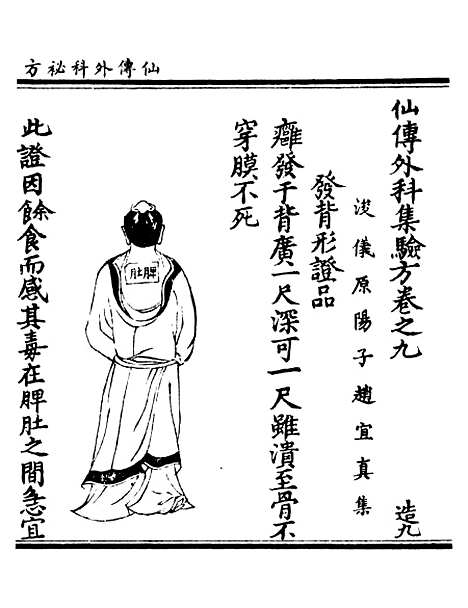 仙傳外科祕方
仙傳外科集驗方卷之九
造九
浚儀原陽子趙宜真集
發背形證品
癰發于背廣一尺深可一尺雖潰至骨不
穿膜不死
脾肚
此證因餘食而感其毒在脾肚之間急宜